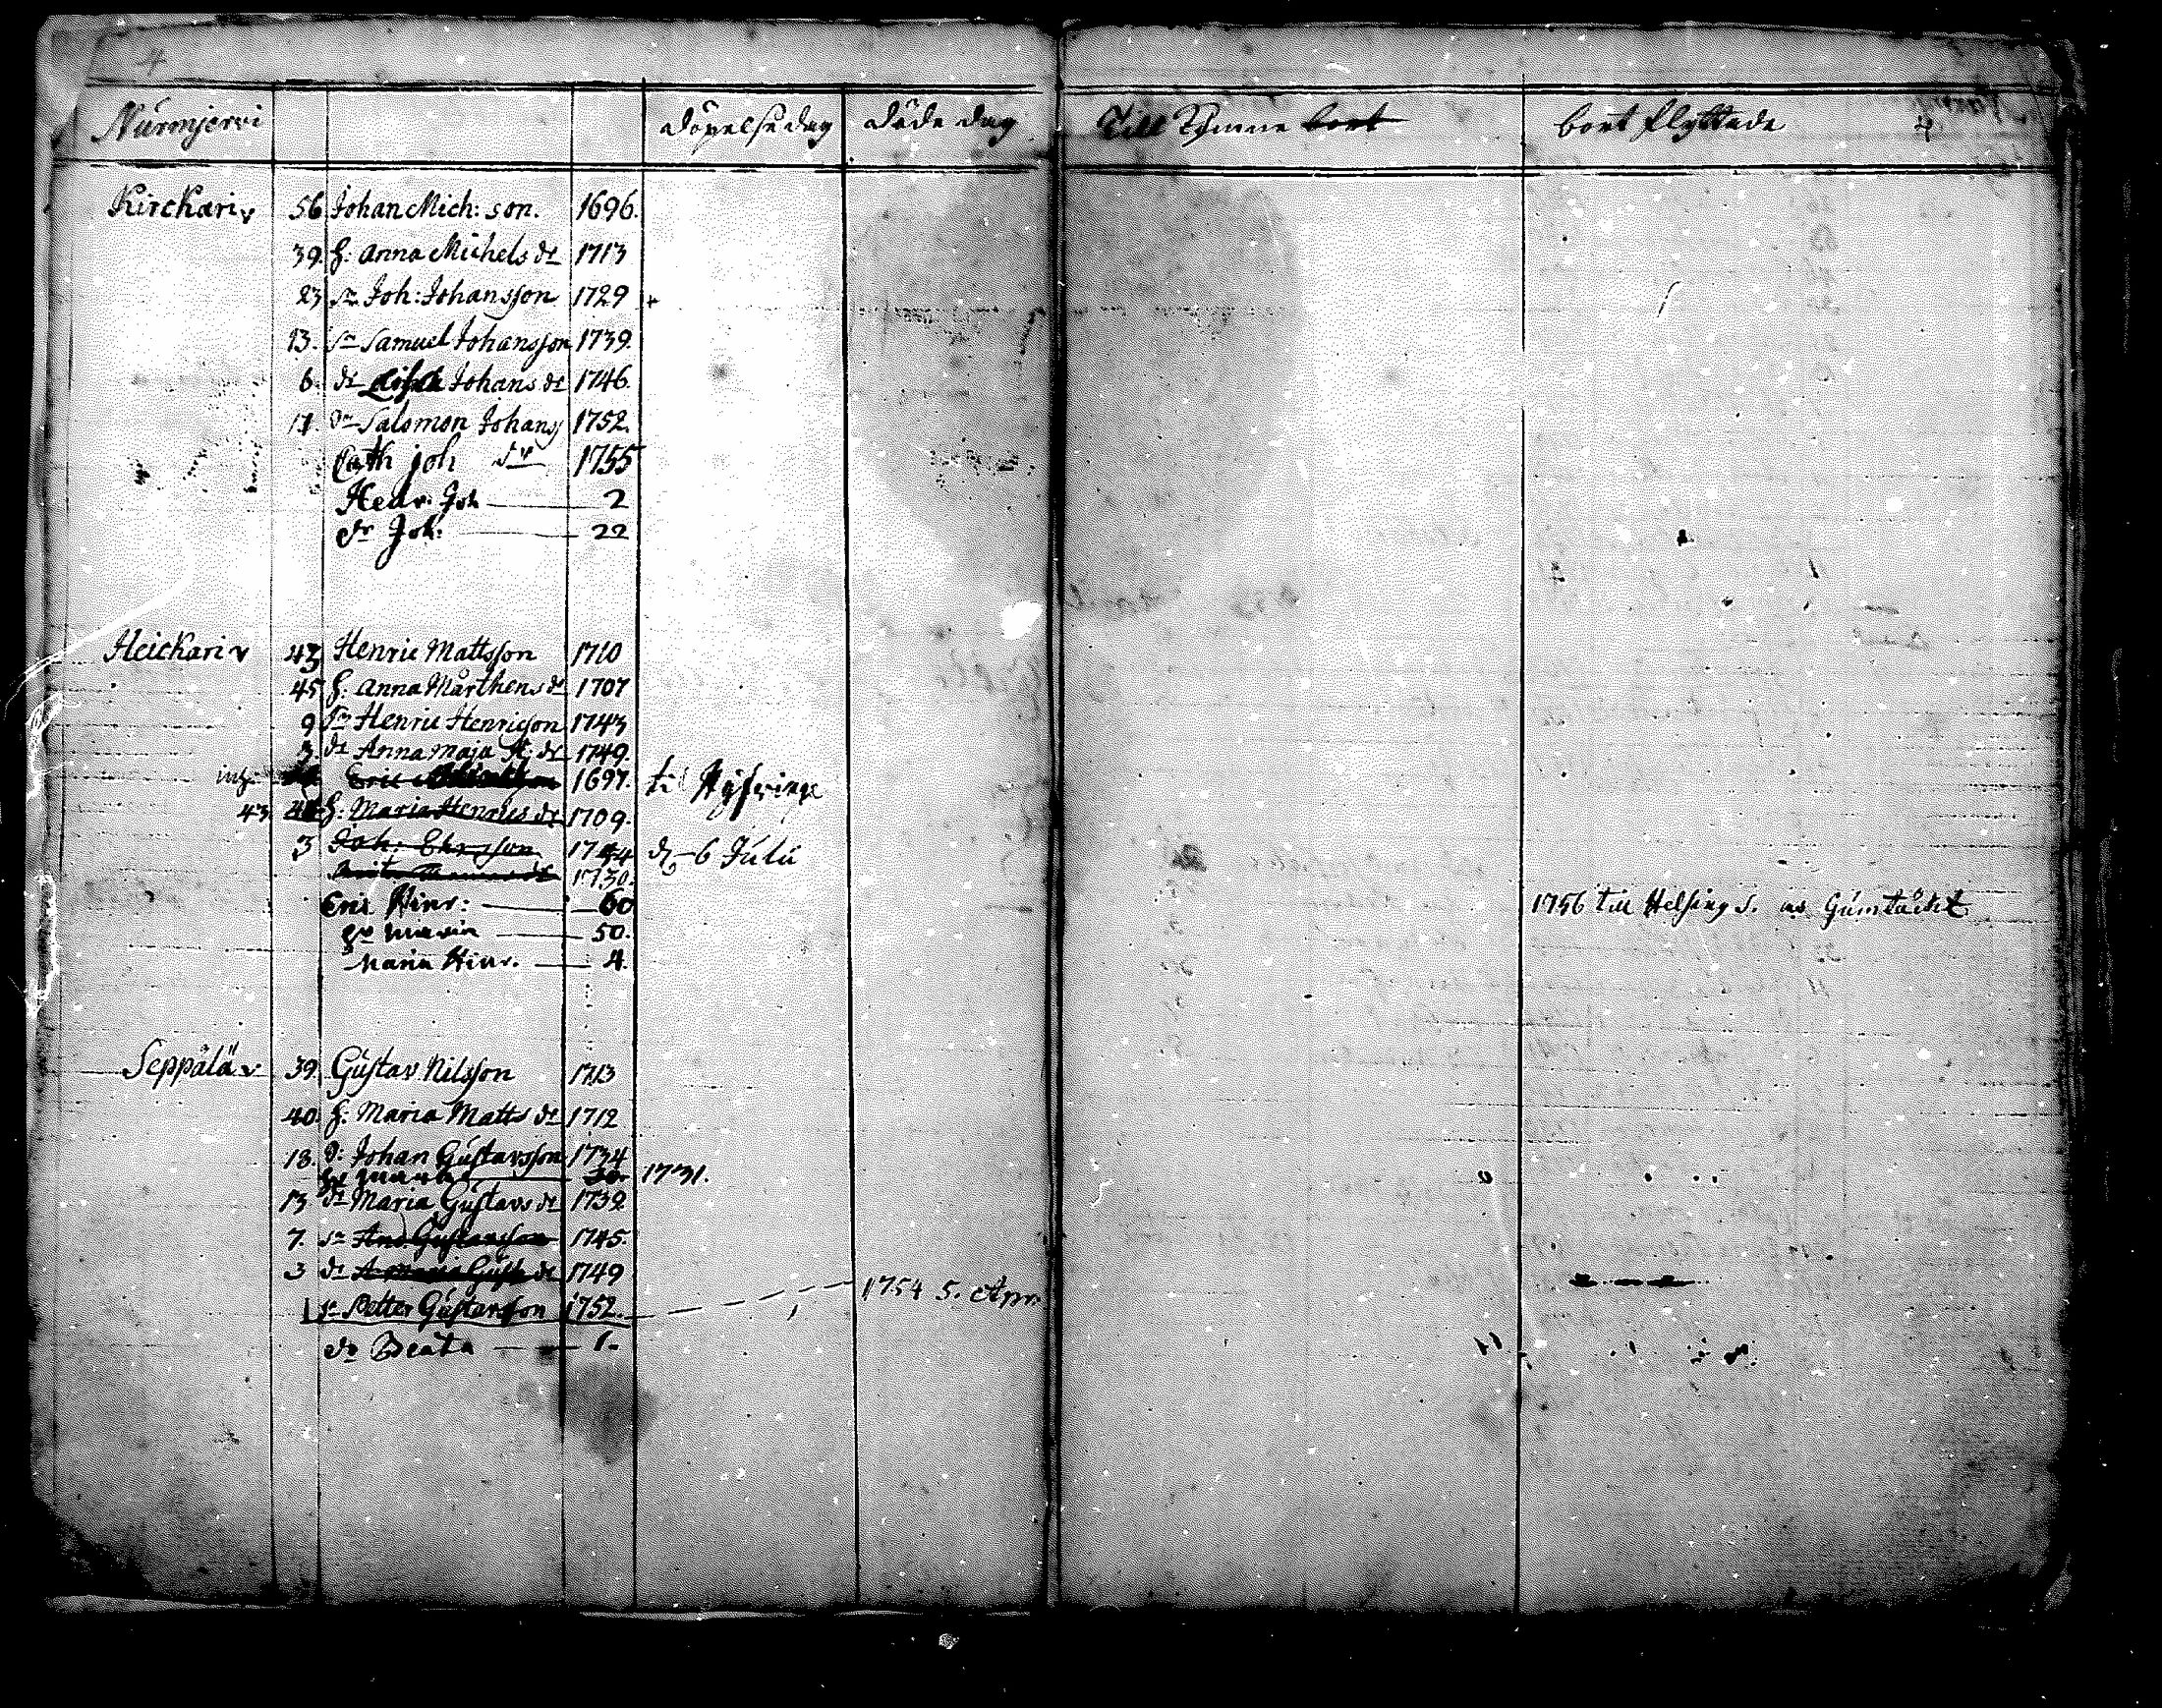 4
Nurmjervi döpelsedag döde dag Till bort bort flyttade 4
Kirckari v 56 Johan Mich: son. 1696.
39. h: Anna Michels dr 1713
23 sn Joh: Johansson 1729 +
13. sn Samuel Johansson 1739.
6. dr Lisa Johans dr 1746.
11. sn Salomon Johans 1752.
Cath joh dr 1755
Hedv. Joh 2
dr Joh. 22
Heickari v 43 Henric Mattsson 1710
45 h: Anna Mårthens dr 1707
9 sn Henric Henricson 1743
3 dr Anna Maja H: dr 1749.
inh. Eric 1697. til Hyfvinge
43 h: Maria Henrics dr 1709.
3 Joh: Ehrsson 1744 d. 6 Julii
1730.
Eric Hinr: 60 1756 till Helsing S. Gumtäckt
hu Maria 50.
Maria Hinr. 4.
Seppälä v 39. Gustav Nilsson 1713
40. h: Maria Matts dr 1712
18. s: Johan Gustavsson 1734
hu 20. 1731.
13. dr Maria Gustavs dr 1739
7. sn And. Gustavsson 1745.
3 dr A Maria Gust dr 1749
1 sn Petter Gustavsson 1752. 1754 5. Apr.
dr Beata 1.